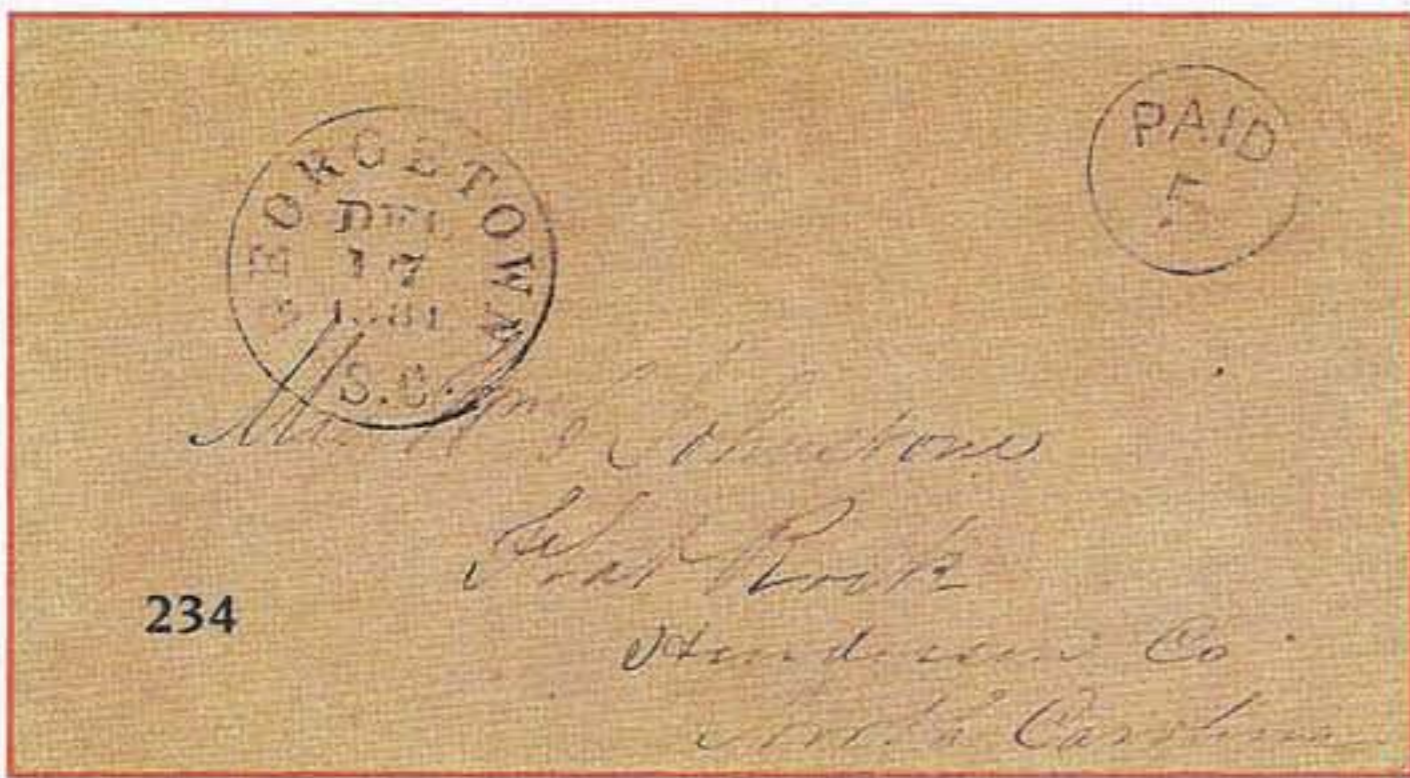 GEORGETOWN
DEC
17
1861
S.C.
PAID
5
Johnstone
Flat Rock
Henderson Co
North Carolina
234